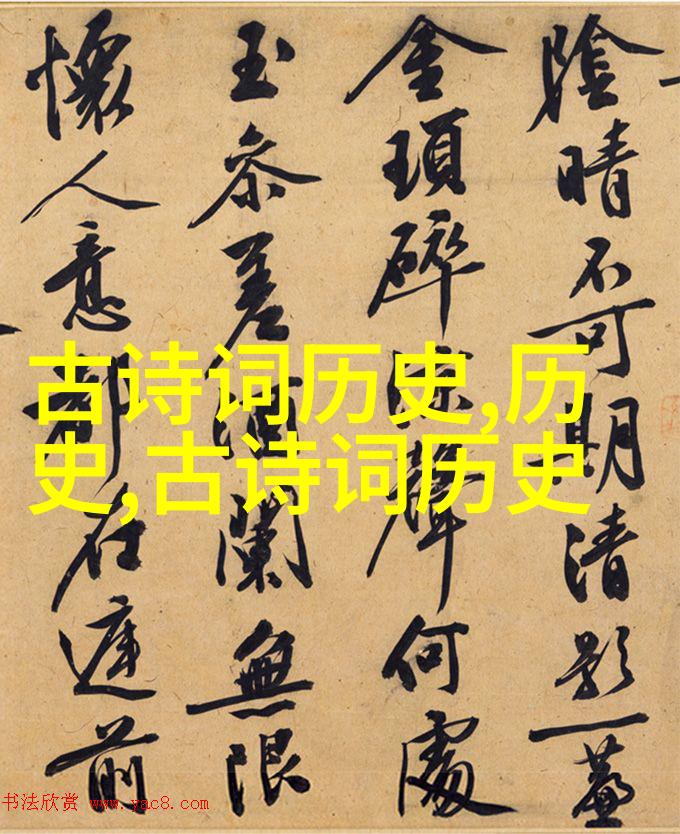 陰晴不可期清影一蓋
金瑣碎聲何處
玉參差酒闌無限
懷人意都在庭前
古诗词历史,历
史,古诗词历史
书法欣赏 www.yac8.com